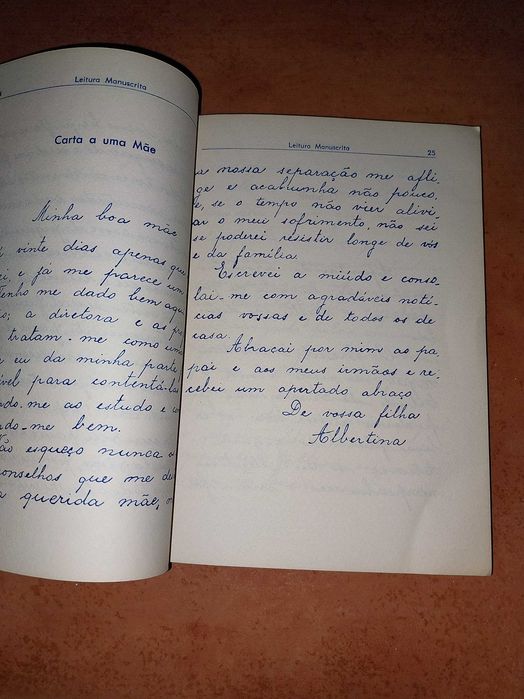 Leitura Manuscrita
Carta a uma Mãe
Minha boa mãe
vinte dias apenas que
e já me parece um
Tenho me dado bem aqui
a diretora e as
tratam-me como uma
e eu da minha parte
para contentá-las
ao estudo e
me bem.
esqueço nunca os
conselhos que me
querida mãe,
Leitura Manuscrita 25
a nossa separação me afli-
ge e acabrunha não pouco,
e, se o tempo não vier alivi-
ar o meu sofrimento, não sei
se poderei resistir longe de vós
e da família.
Escrevei a miúdo e conso-
lai-me com agradáveis notí-
cias vossas e de todos os de
casa.
Abraçai por mim ao pa-
pai e aos meus irmãos e re-
cebei um apertado abraço
De vossa filha
Albertina